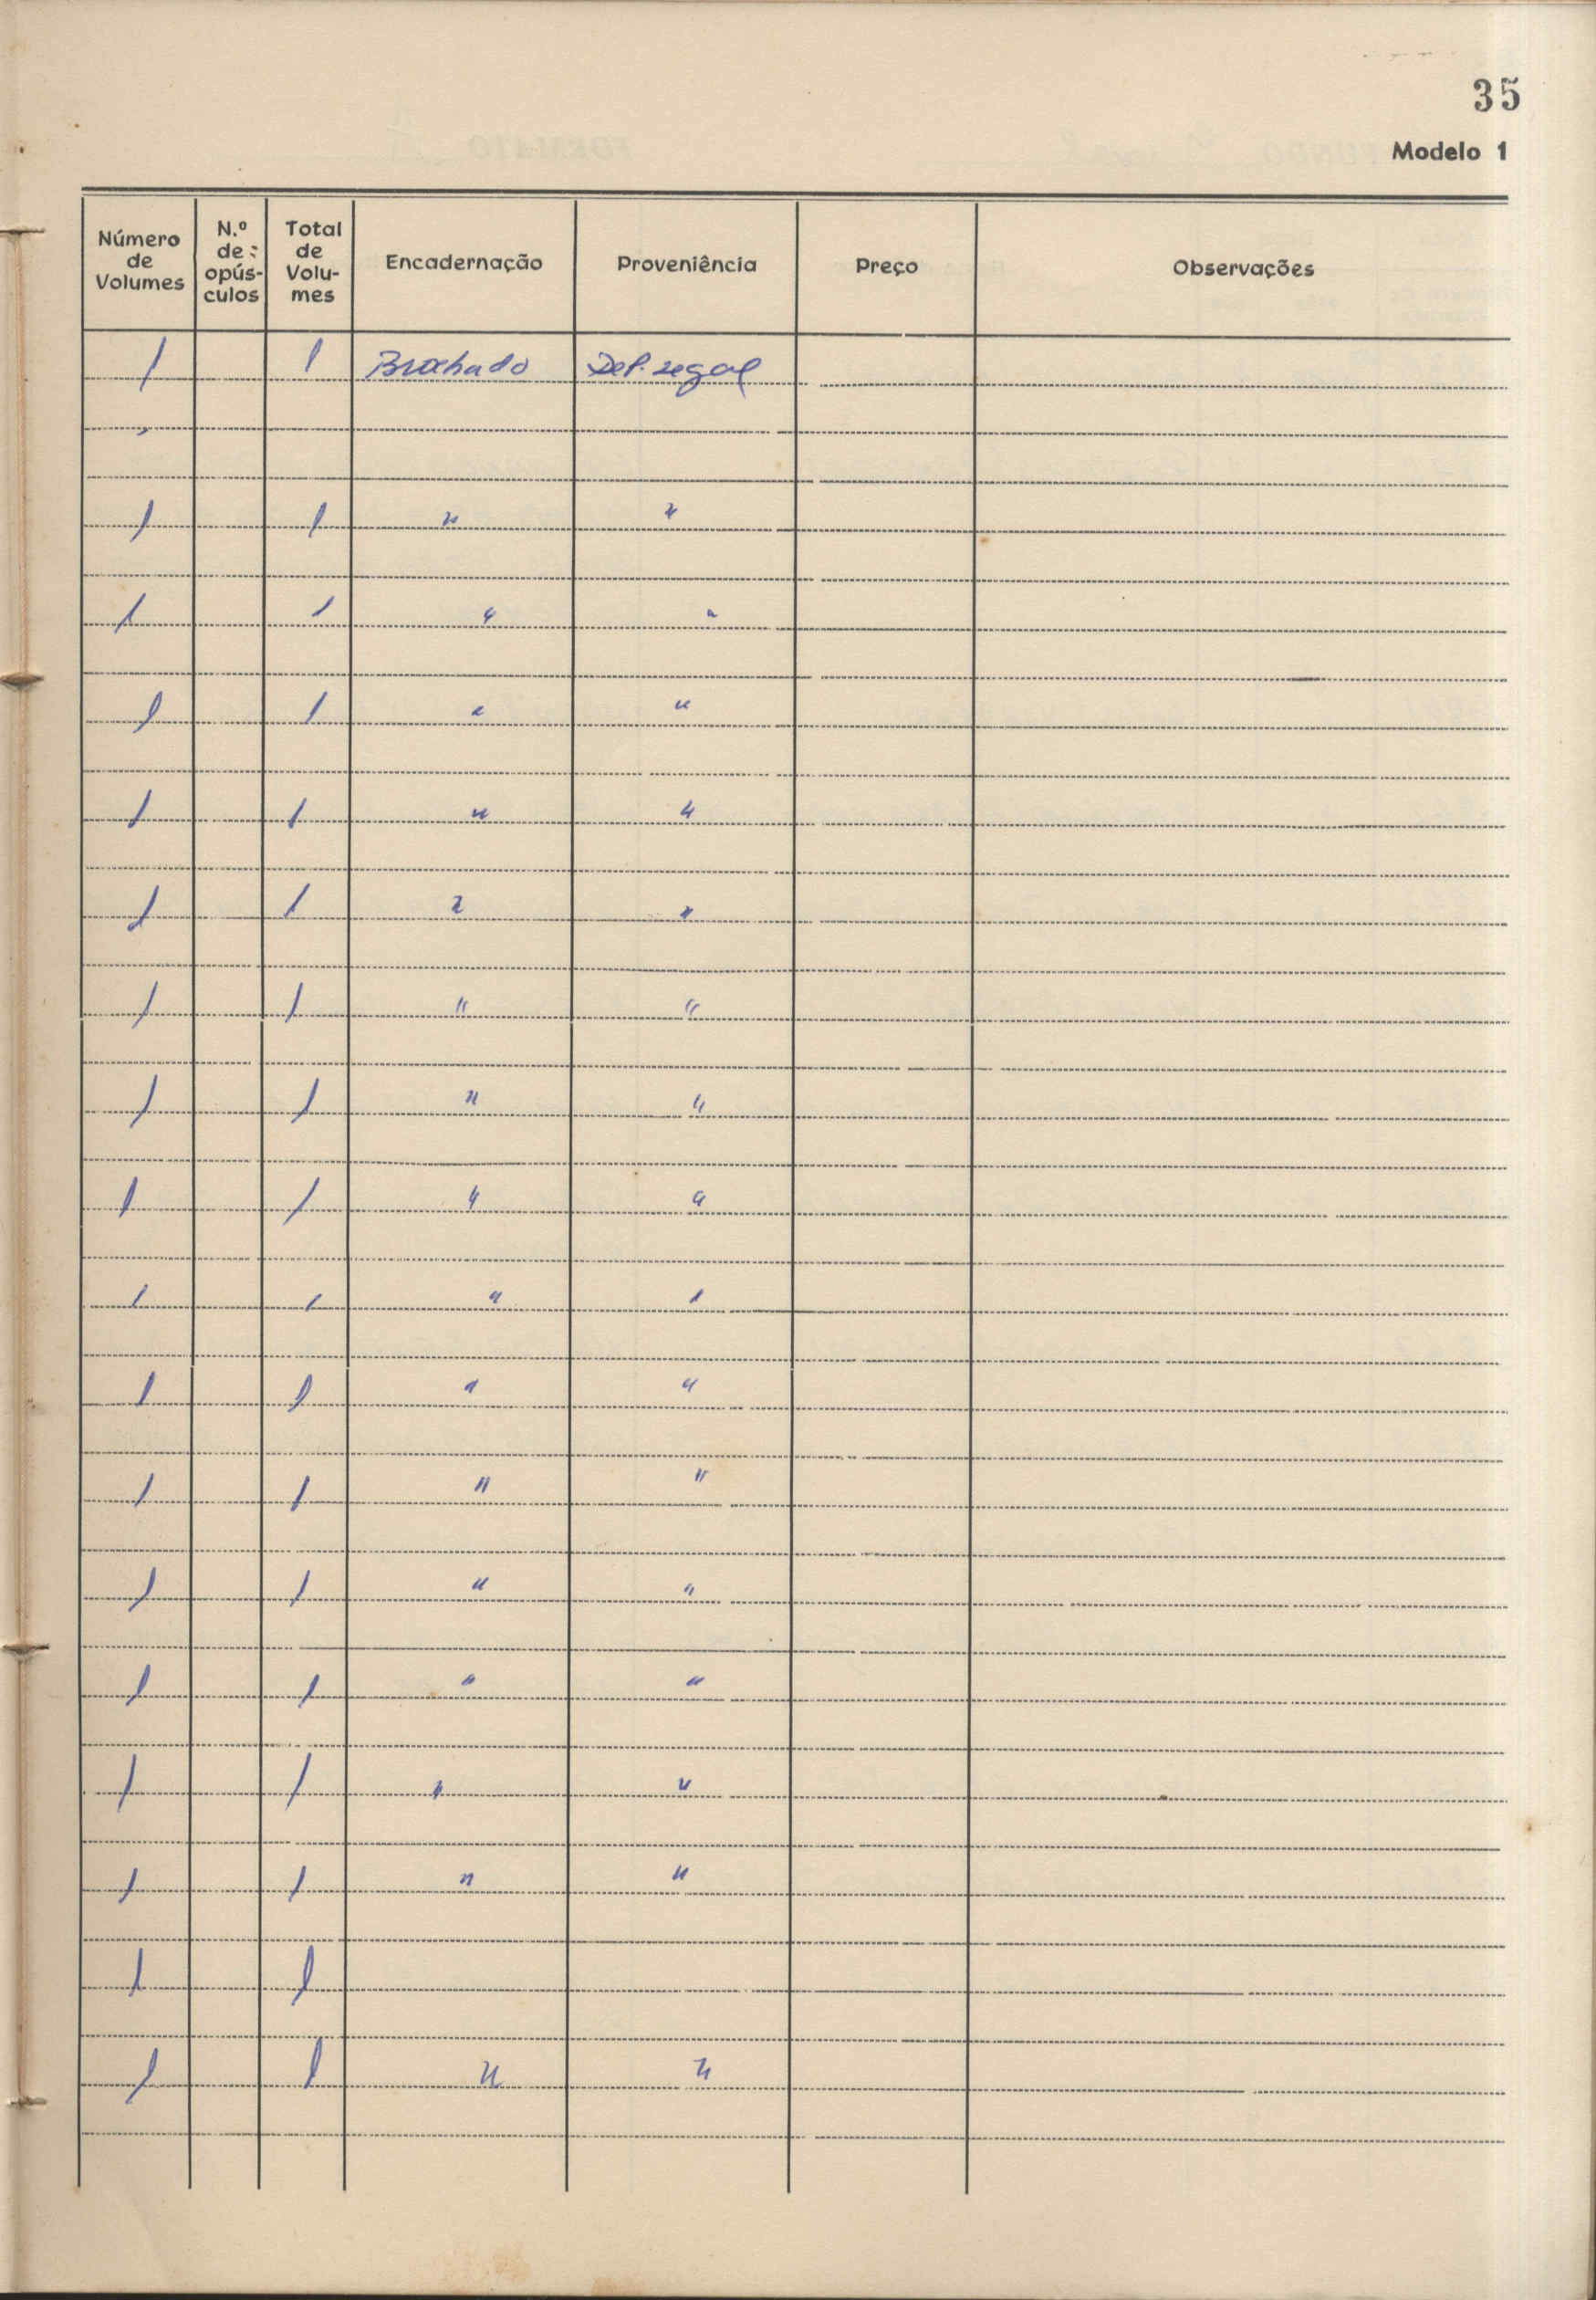 35
Modelo 1
Número de Volumes | N.º de opús-culos | Total de Volu-mes | Encadernação | Proveniência | Preço | Observações
1 | 1 | Brochado | Dep. legal
1 | 1 | " | "
1 | 1 | " | "
1 | 1 | " | "
1 | 1 | " | "
1 | 1 | " | "
1 | 1 | " | "
1 | 1 | " | "
1 | 1 | " | "
1 | 1 | " | "
1 | 1 | " | "
1 | 1 | " | "
1 | 1 | " | "
1 | 1 | " | "
1 | 1 | " | "
1 | 1 | " | "
1 | 1
1 | 1 | " | "